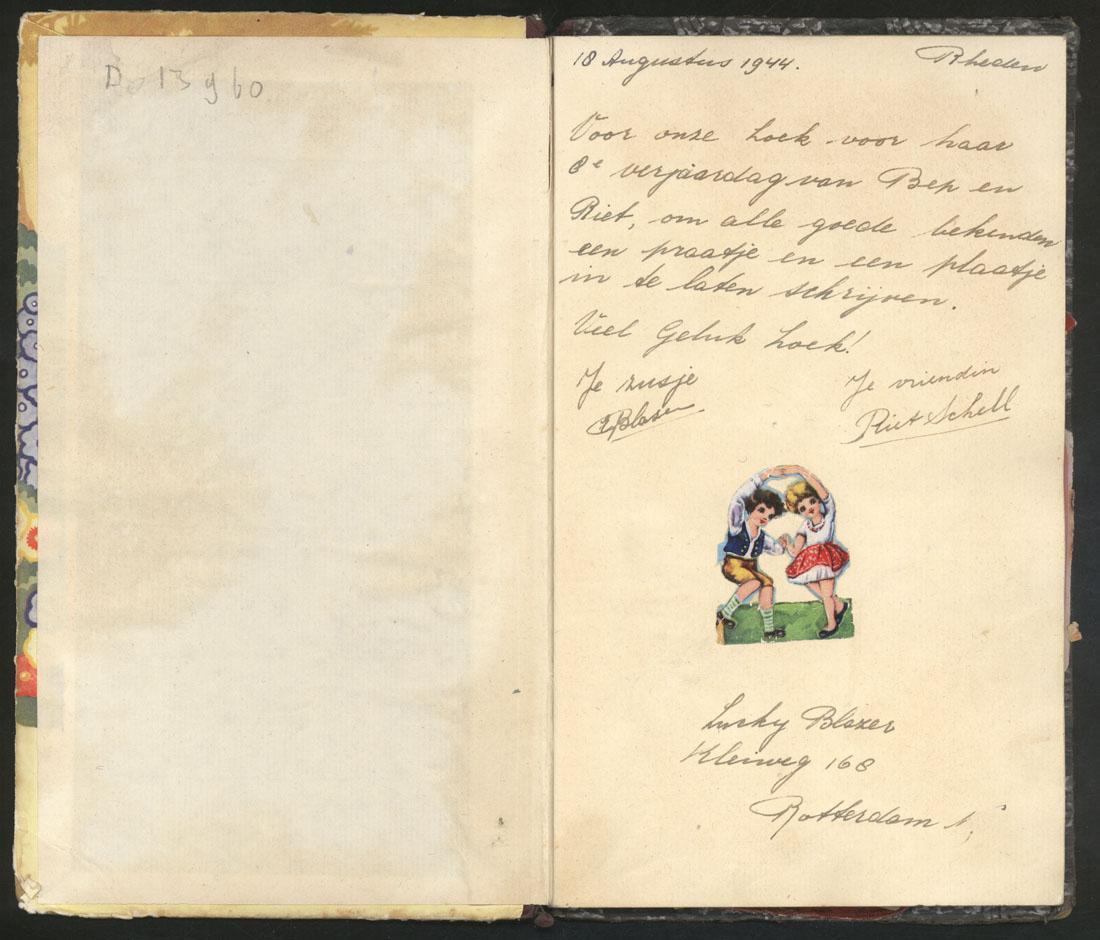 D 13 g 60
18 Augustus 1944. Rheden
Voor onze Loek voor haar
8e verjaardag van Bep en
Riet, om alle goede bekenden
een praatje en een plaatje
in te laten schrijven.
Veel Geluk Loek!
Je zusje Je vriendin
Blazer Riet Schell
Blazer
Kleiweg 168
Rotterdam N.